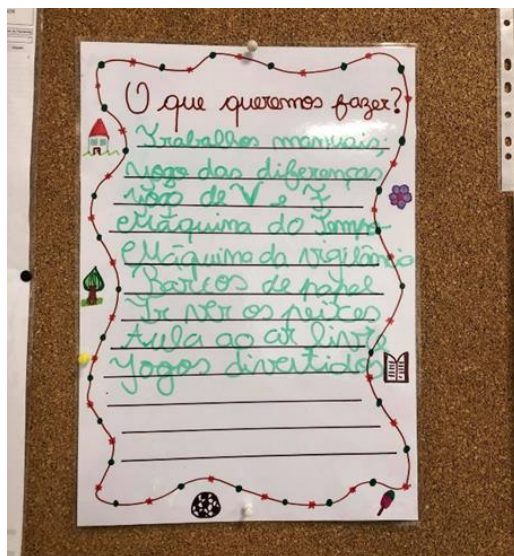 O que queremos fazer?
Trabalhos manuais
Jogo das diferenças
Jogo de V e F
Máquina do Tempo
Máquina da vigilância
Barcos de papel
Ir ver os peixes
Aula ao ar livre
Jogos divertidos